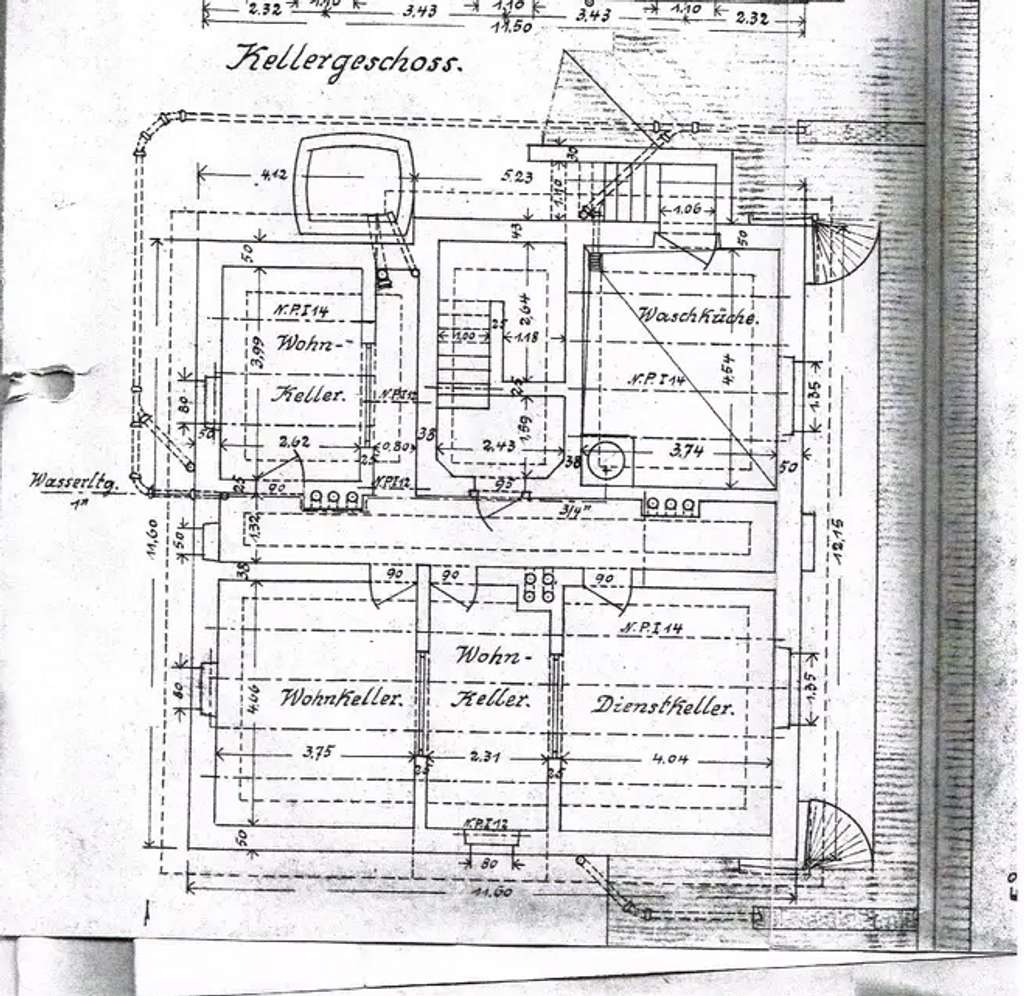 2.32 1.10 3.43 1.10 3.43 1.10 2.32
11.50
Kellergeschoss.
4.12 5.23
30
1.10
1.06
50 43 50
N.P.I 14
Wohn-
Keller.
3,99
2,64
25
1.00 1.18
Waschküche.
N.P.I 14
4,54
1.35
80
N.P.I 12
25
1,59
50 2.62 25 0.80 38 2.43 38 3.74 50
Wasserltg.
1"
25 90 N.P.I 12 95
3/4"
11,60 50 1.32 12,15
38 90 90 90
N.P.I 14
Wohn-
Keller.
Wohnkeller.
Dienstkeller.
80 4.66 1.35
3.75 2.31 4.04
25 25
N.P.I 12
50
80
11.60